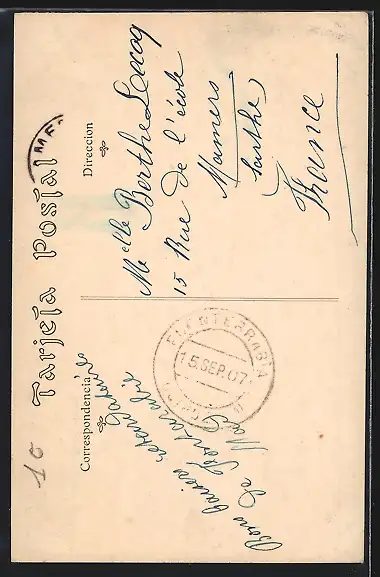 Tarjeta Postal
Correspondencia
Direccion
Mlle Berthe Lecoq
15 Rue de l'école
Mamers
Sarthe
France
Bons baisers
de Fontarabie
FUENTERRABIA
15.SEP.07
1c